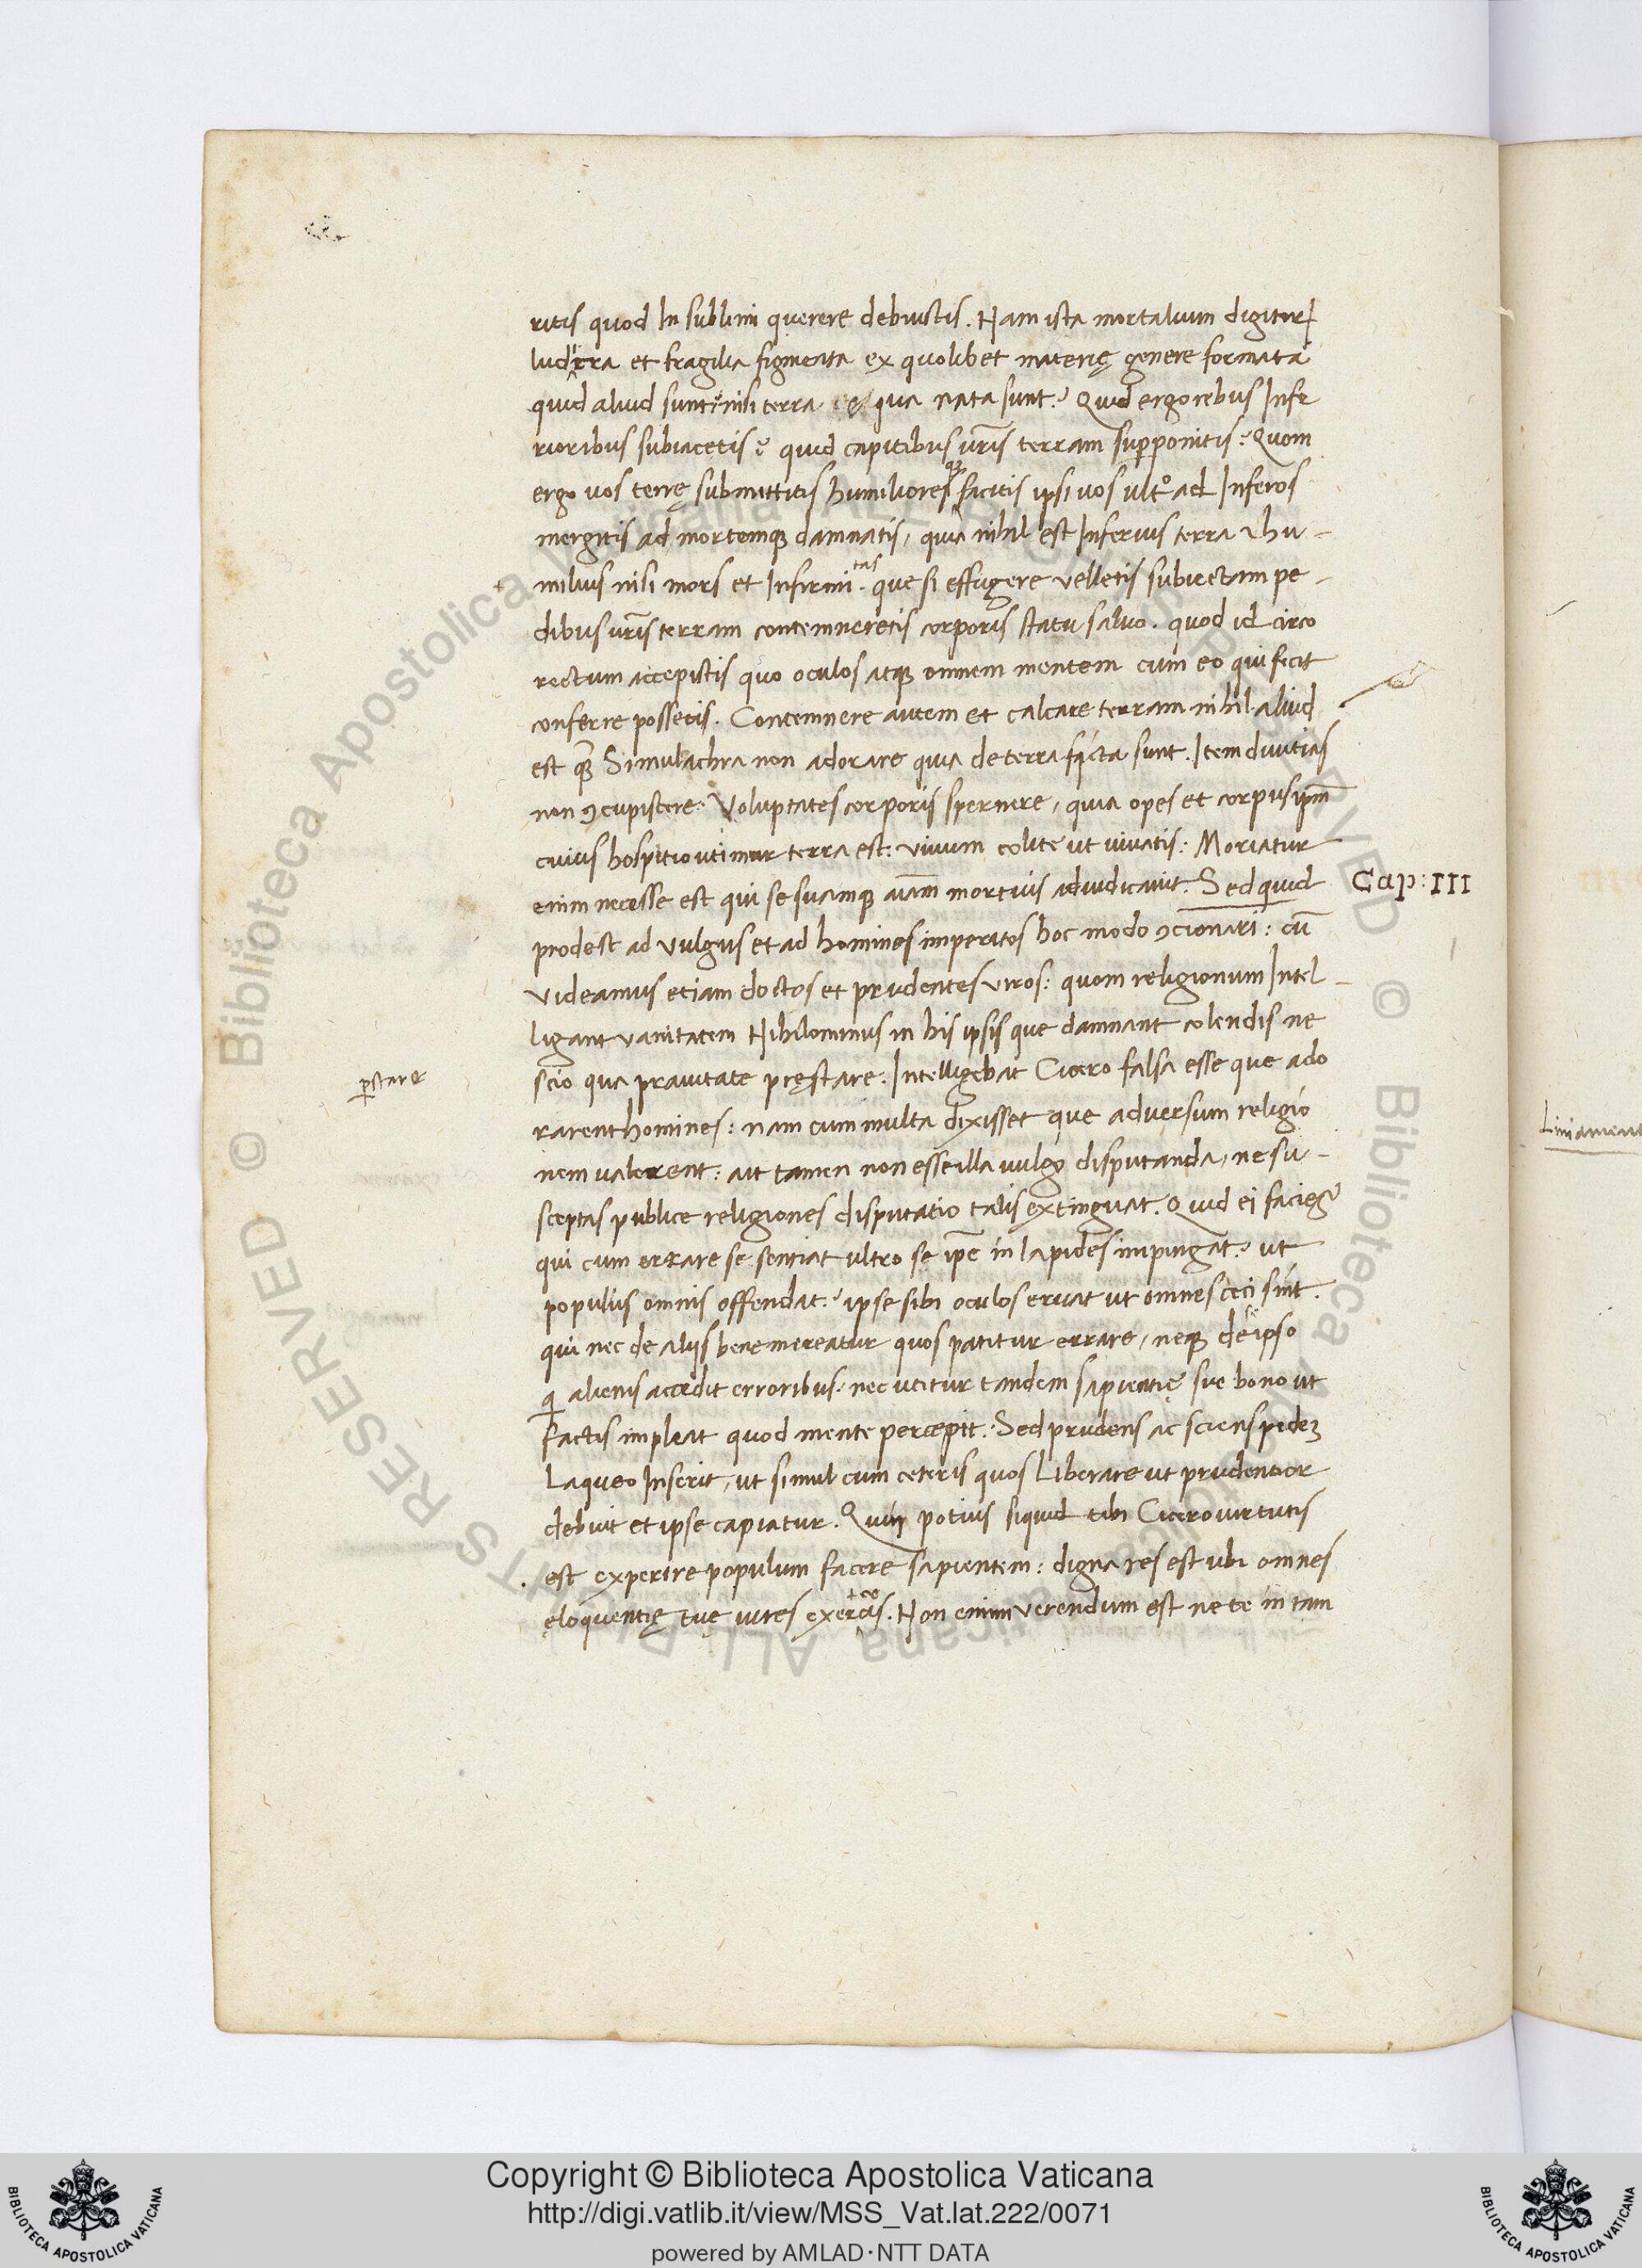 ritis quod In sublimi querere debuistis. Nam ista mortalium digitorꝝ
ludicra et fragilia figmenta ex quolibet materię genere formata
quid aliud sunt nisi terra ex qua nata sunt? Quid ergo rebus Infe
rioribus subiacetis? quid capitibus uris̄ terram supponitis? Quom
ergo uos terrę submittitis humilioresqꝫ facitis ipsi uos ultᵒ ad Inferos
mergitis ad mortemqꝫ damnatis, quia nihil est Inferius terra & hu-
milius nisi mors et Infirmitas. que si effugere velletis subiectam pe-
dibus uris̄ terram contemneretis corporis statu saluo. quod id circo
rectum accepistis quo oculos atqꝫ omnem mentem cum eo qui fecit
conferre possetis. Contemnere autem et calcare terram nihil aliud
est qꝫ Simulachra non adorare quia de terra ficta sunt. Item diuitias
non ꝯcupiscere: Voluptates corporis spernere, quia opes et corpus ipm̄
cuius hospitio utimur terra est: viuum colite ut uiuatis: Moriatur
enim necesse est qui se suamqꝫ aiam̄ mortuis adiudicauit. Sed quid
Cap: III
prodest ad vulgus et ad homines imperitos hoc modo ꝯcionari: cū
videamus etiam doctos et prudentes viros: quom religionum Intel-
ligant vanitatem Nihilominus in his ipsis que damnant colendis ne
scio qua prauitate pręstare. Intelligebat Cicero falsa esse que ado
ꝑstare
rarent homines: nam cum multa dixisset que aduersum religio
nem valerent: ait tamen non esse illa uulgo disputanda, ne su-
sceptas publice religiones disputatio talis extinguat. Quid ei facies
qui cum errare se sentiat ultro se ipē in lapides impingat? ut
populus omnis offendat? ipse sibi oculos eruat ut omnes ceci sint.
qui nec de alijs bene mereatur quos patitur errare, neqꝫ de se ipso
qi alienis accedit erroribus. nec utitur tandem sapientię sue bono ut
factis impleat quod mente percepit. Sed prudens ac sciens pedeꝫ
Laqueo Inserit, ut simul cum ceteris quos Liberare ut prudentior
debuit et ipse capiatur. Quin potius siquid tibi Cicero uirtutis
est experire populum facere sapientem: digna res est ubi omnes
eloquentię tuę uires exerceas. Non enim verendum est ne te in tam
Liniament
Copyright © Biblioteca Apostolica Vaticana
http://digi.vatlib.it/view/MSS_Vat.lat.222/0071
powered by AMLAD·NTT DATA
BIBLIOTECA APOSTOLICA VATICANA
BIBLIOTECA APOSTOLICA VATICANA